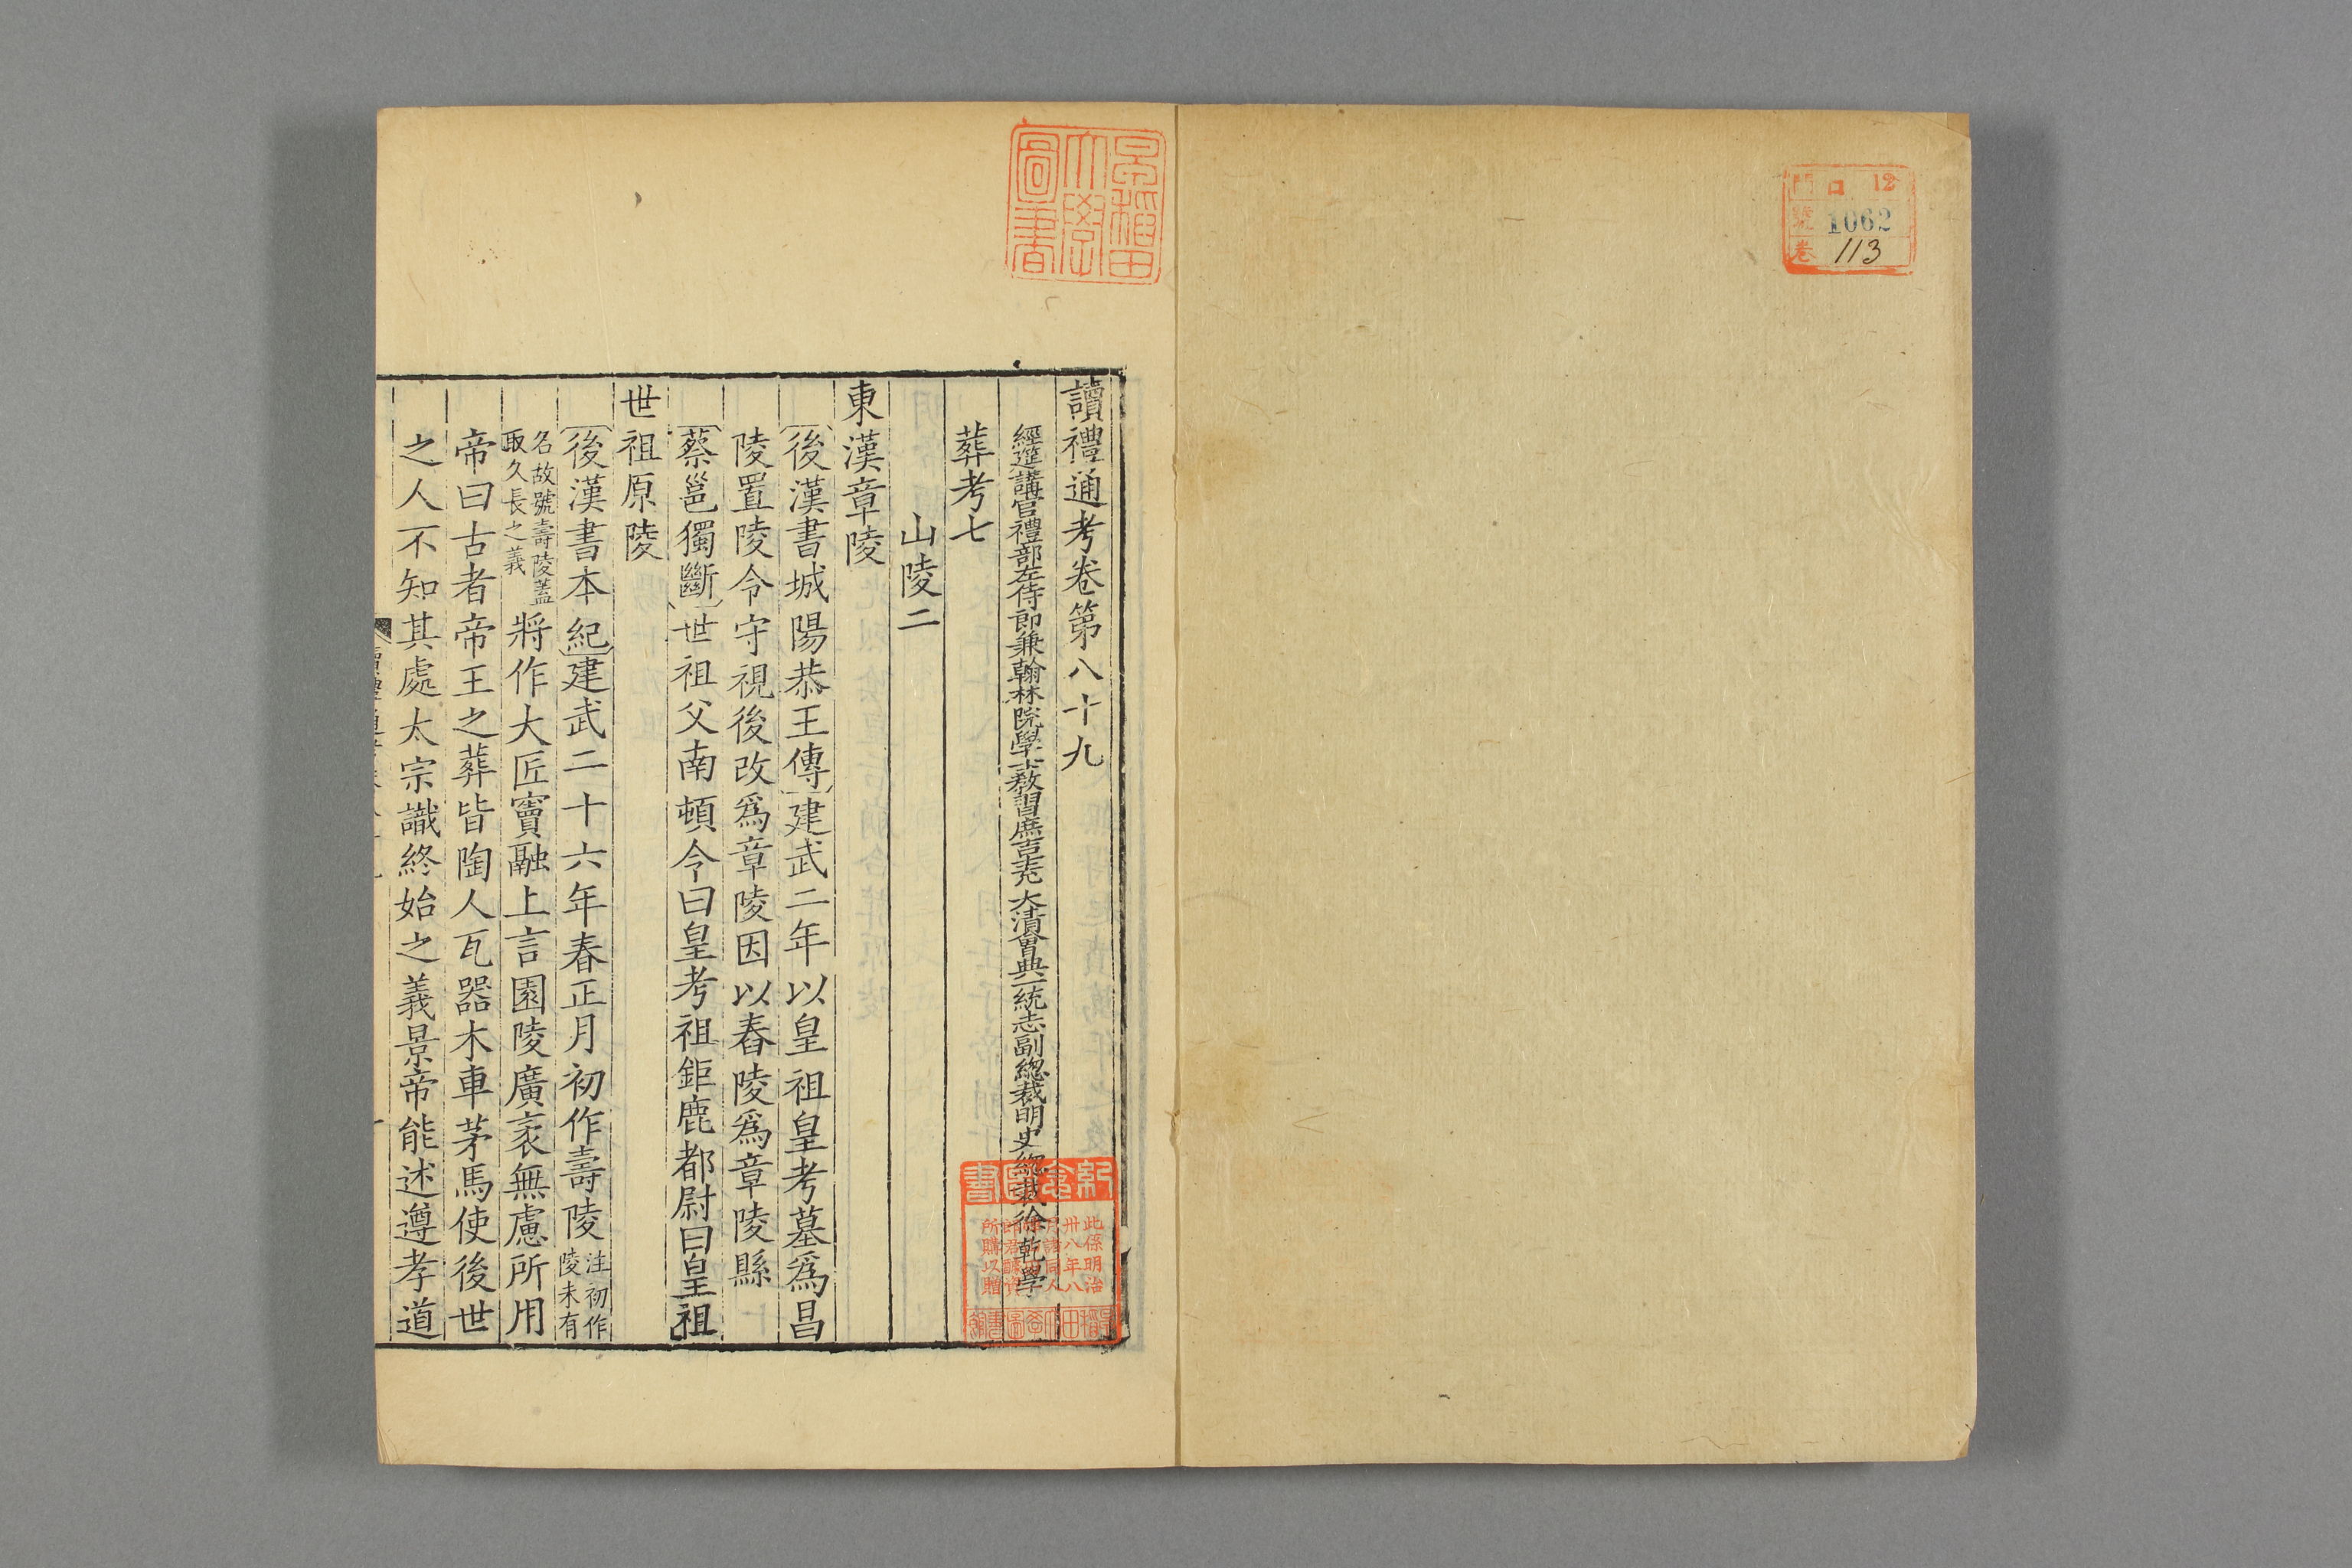 門 口 12
號 1062
卷 113
早稲田
大學
圖書
讀禮通考卷第八十九
經筵講官禮部左侍郎兼翰林院學士教習庶吉士充 大清會典一統志副總裁明史總裁徐乾學
葬考七
山陵二
東漢章陵
後漢書城陽恭王傳建武二年以皇祖皇考墓爲昌
陵置陵令守視後改爲章陵因以舂陵爲章陵縣
蔡邕獨斷世祖父南頓令曰皇考祖鉅鹿都尉曰皇祖
世祖原陵
後漢書本紀建武二十六年春正月初作壽陵 注初作
陵未有
名故號壽陵蓋
取久長之義
將作大匠竇融上言園陵廣袤無慮所用
帝曰古者帝王之葬皆陶人瓦器木車茅馬使後世
之人不知其處太宗識終始之義景帝能述遵孝道
紀念圖書
此係明治
卅八年八
所購以贈